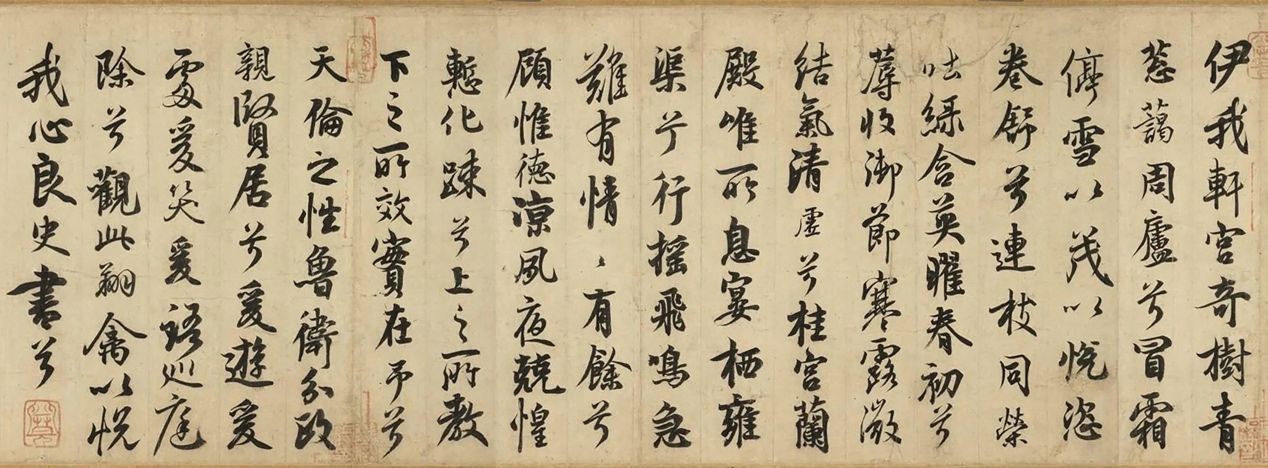 伊我軒宮奇樹青
蔥藹周廬兮冒霜
停雪以茂以悅恣
卷舒兮連枝同榮
吐綠含英曜春初兮
蓐收御節寒露微
結氣清虛兮桂宮蘭
殿唯所息宴栖雍
渠兮行搖飛鳴急
難有情〻有餘兮
顧惟德涼夙夜兢惶
慙化踈兮上之所教
下之所效實在予兮
天倫之性魯衛分政
親賢居兮爰遊爰
處爰笑爰語巡庭
除兮觀此翔禽以悅
我心良史書兮